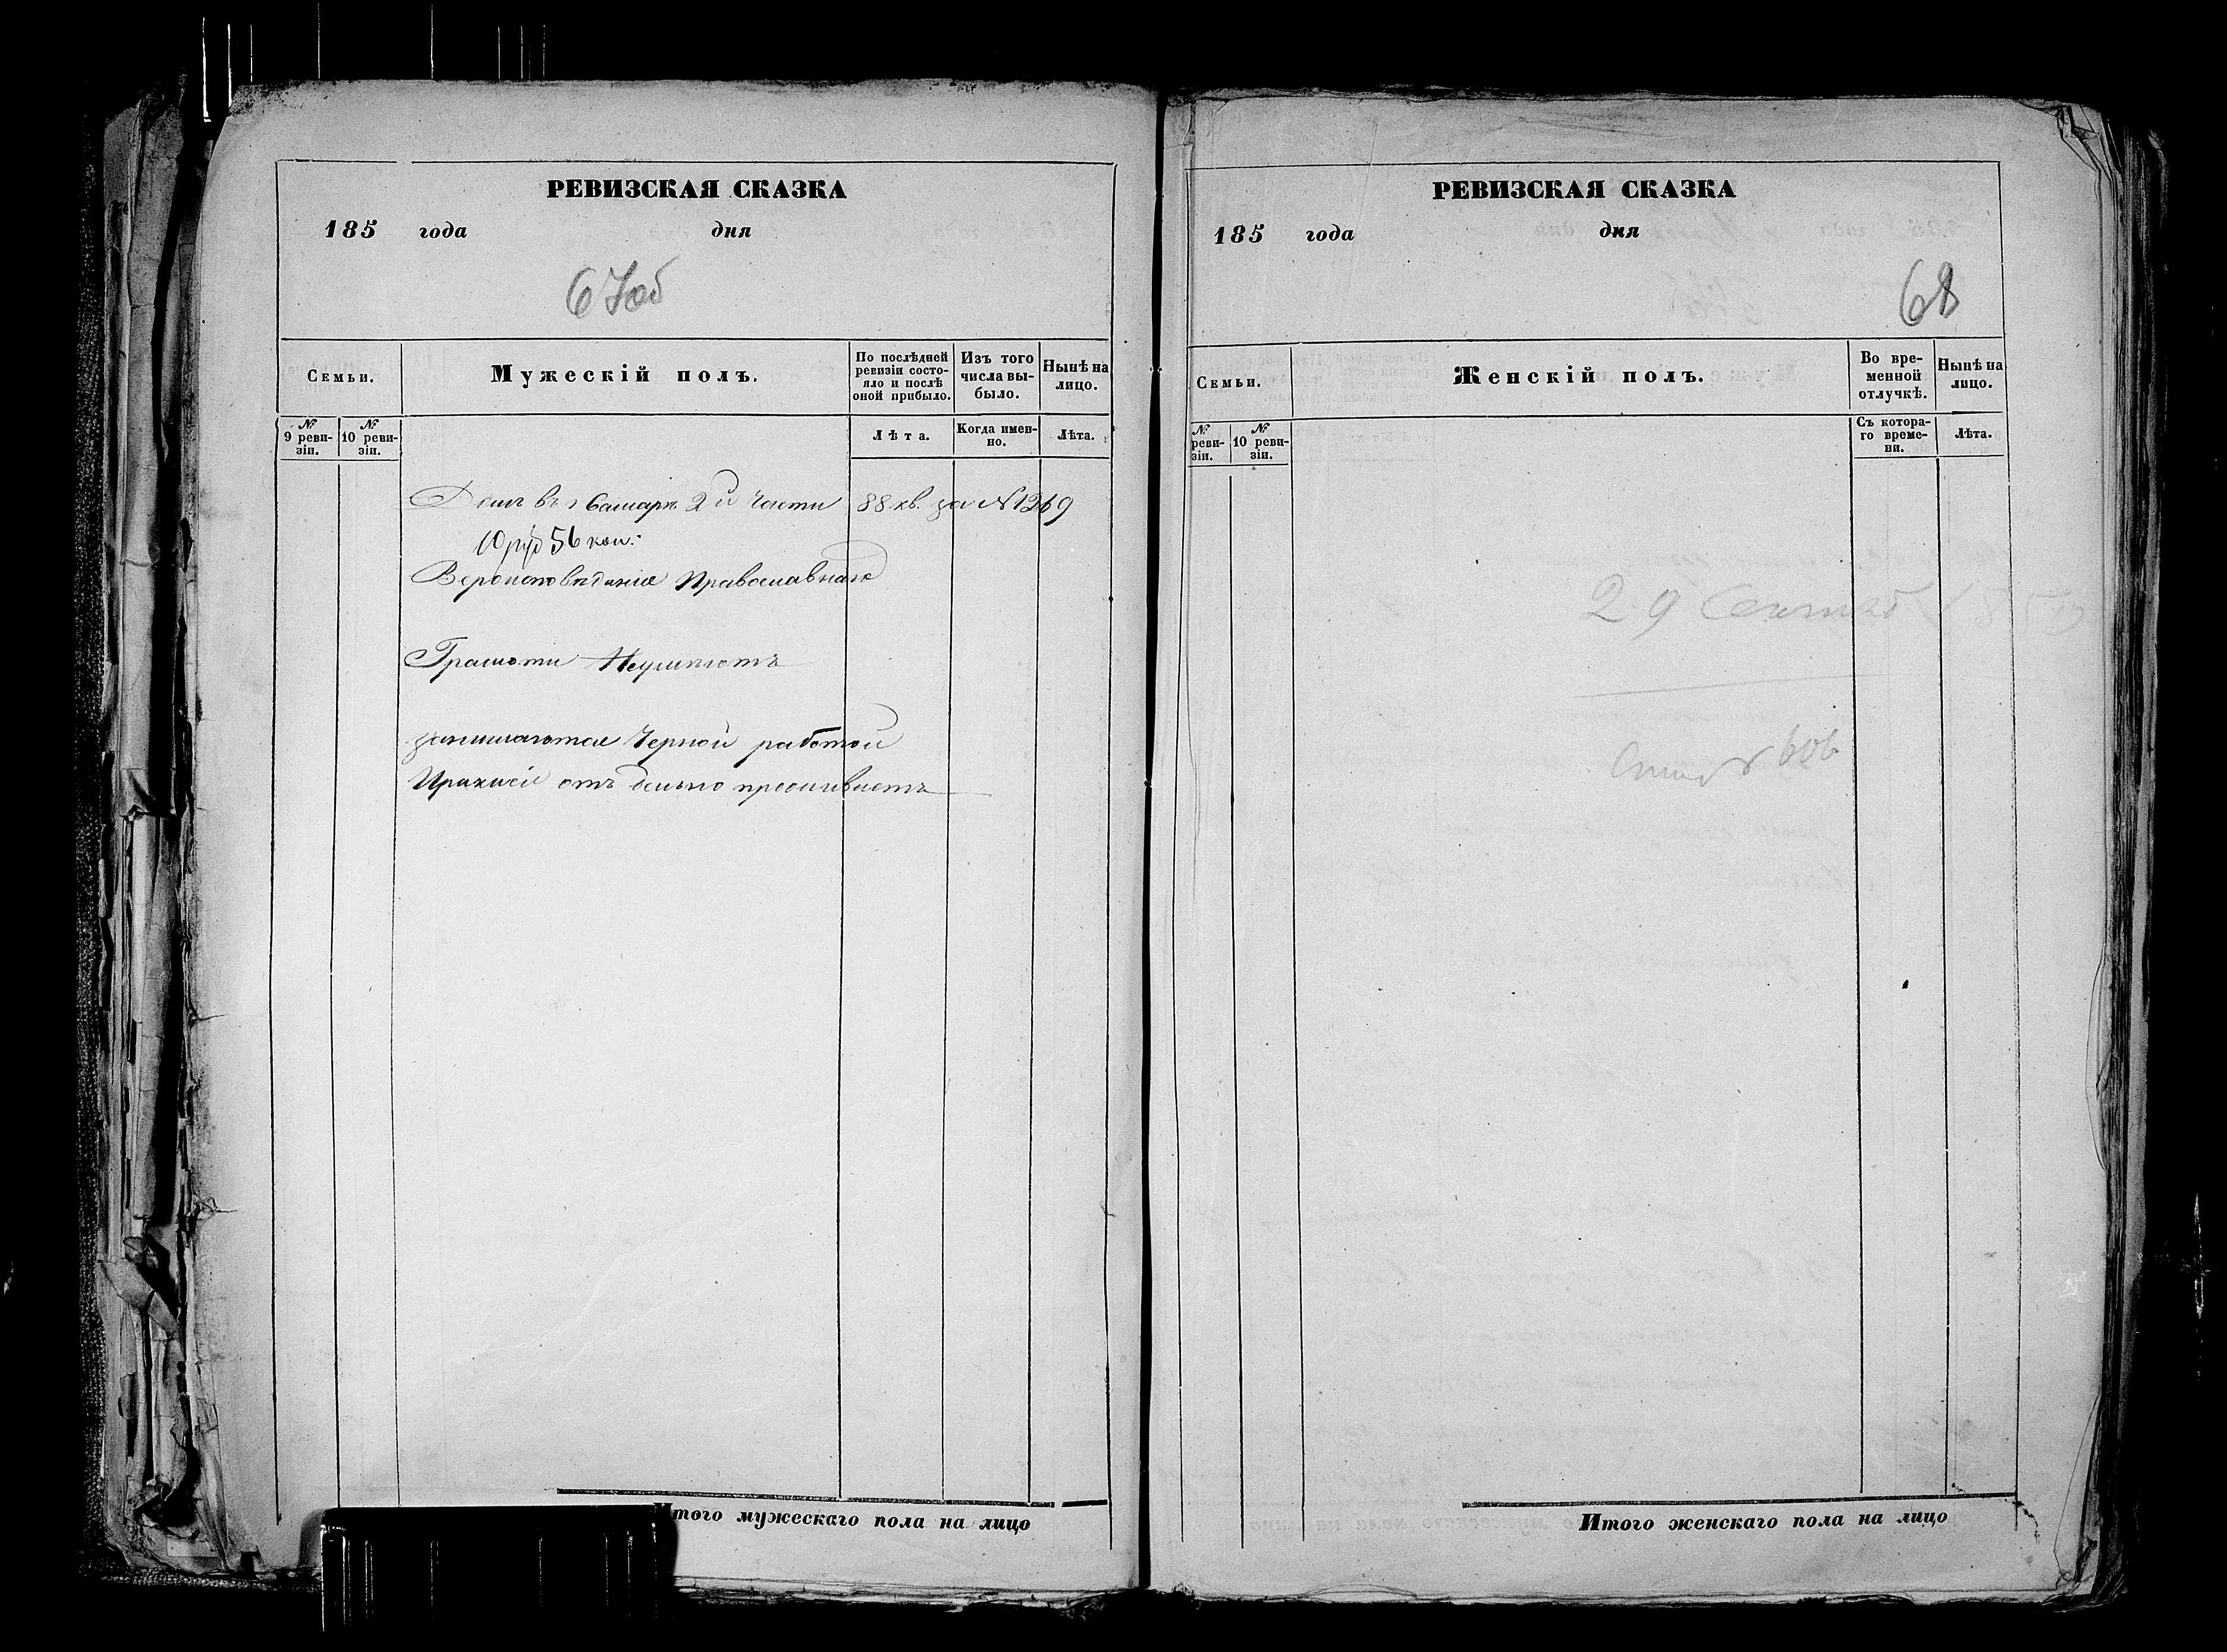 РЕВИЗСКАЯ СКАЗКА
185 года дня
67об
Семьи.
Мужескій полъ.
По послѣдней ревизіи состояло и послѣ оной прибыло.
Изъ того числа выбыло.
Нынѣ на лицо.
№ 9 ревизіи.
№ 10 ревизіи.
Лѣта.
Когда именно.
Лѣта.
Домъ въ г Самарѣ 2й части 88 кв. за №1269
10 руб 56 коп:
Вероисповѣданія Православнаго
Грамоти Неумѣютъ
занимаются Черной работой
отъ дельно проживаетъ
того мужескаго пола на лицо
РЕВИЗСКАЯ СКАЗКА
185 года дня
68
Семьи.
Женскій полъ.
Во временной отлучкѣ.
Нынѣ на лицо.
№ ревизіи.
№ 10 ревизіи.
Съ котораго времени.
Лѣта.
29
606
Итого женскаго пола на лицо